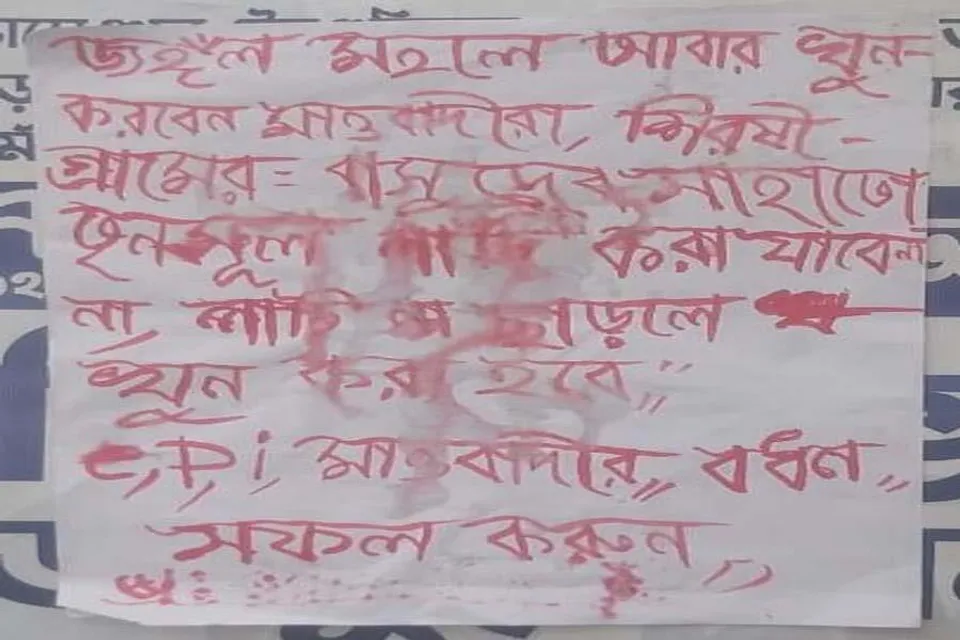 জঙ্গল মহলে আবার খুন-
করবেন মাওবাদীরা, শিরষী-
গ্রামের: বাসু দেব মাহাতো
তৃনমূল পার্টি করা যাবেনা
না, পার্টি না ছাড়লে
খুন করা হবে,,"
C,P,i, মাওবাদীর,, বর্ধন,,
সফল করুন,,